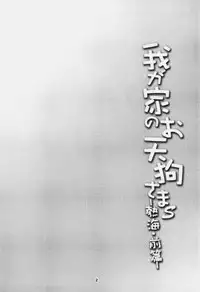 我が家のお天狗さまら
-熱海・前篇-